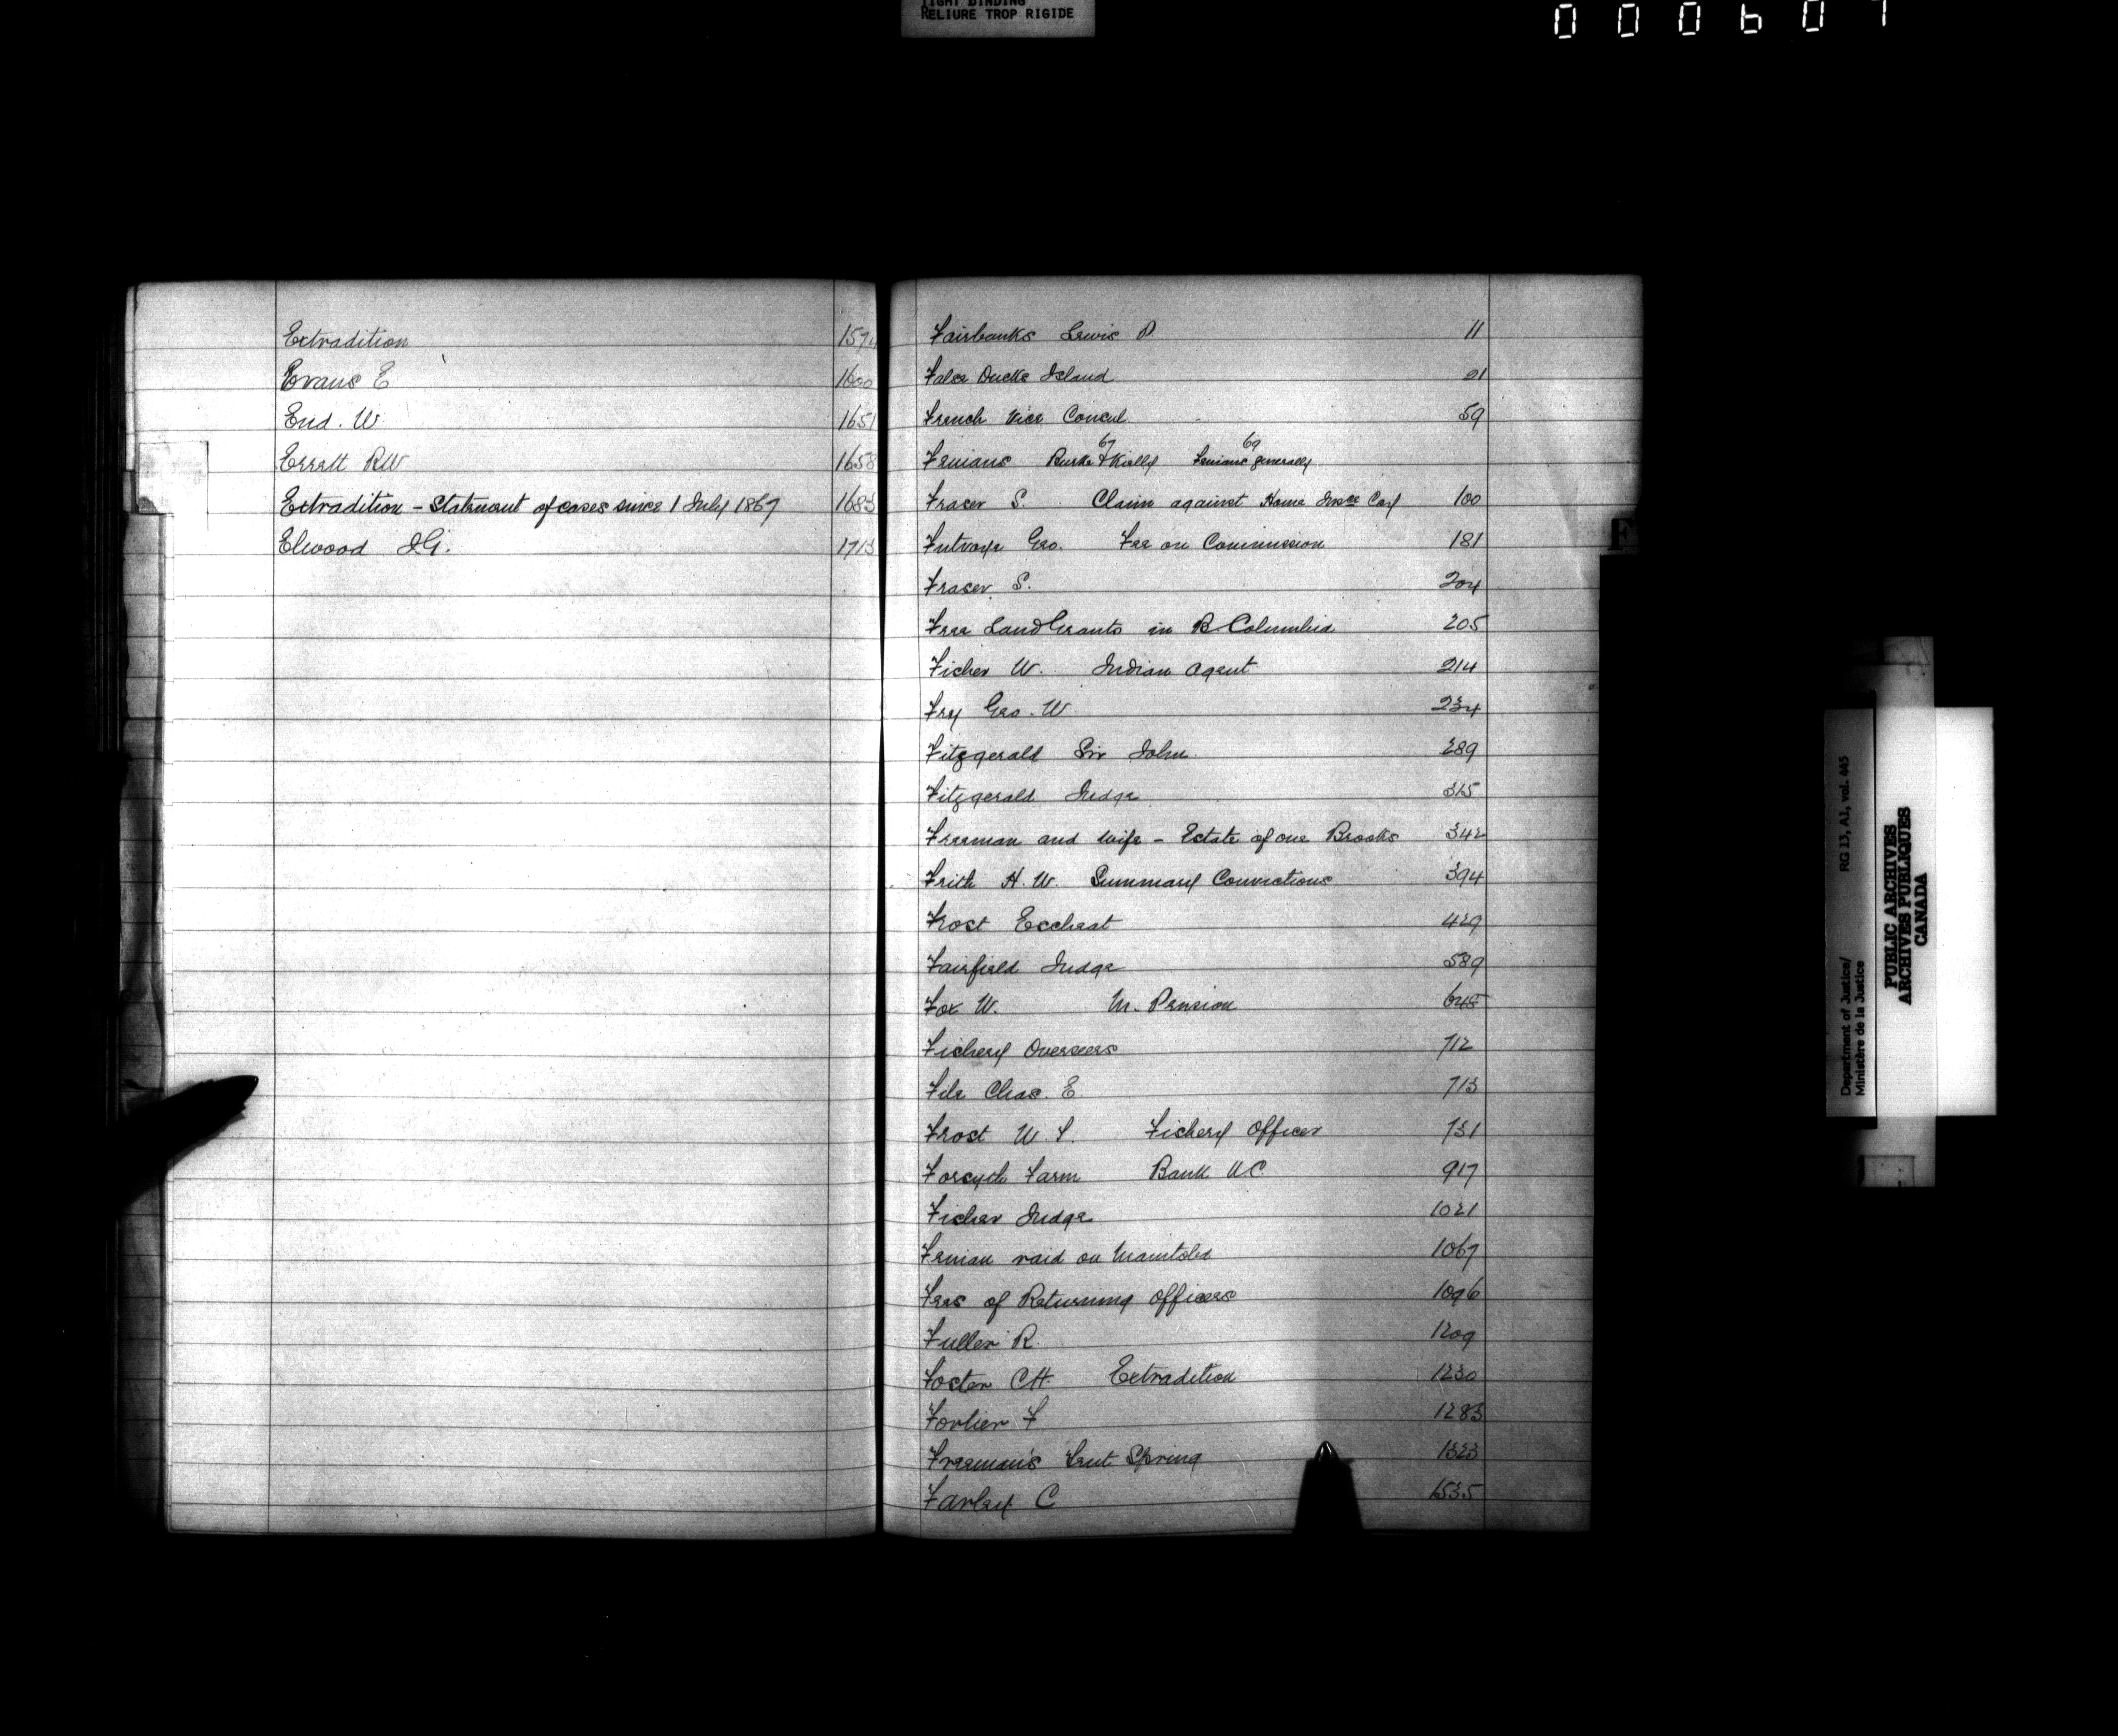 TIGHT BINDING
RELIURE TROP RIGIDE
Extradition 1594
Evans E 1600
End. W. 1651
Erratt RW 1658
Extradition - Statement of cases since 1 July 1867 1683
Elwood J.G. 1713
F
Fairbanks Lewis P. 11
False Ducks Island 21
French Vice Consul 59
Fenians Burke & Kielly 67 Fenians generally 69
Fraser S. Claim against Home Insce Coy 100
Futvoye Geo. Fee on Commission 181
Fraser S. 204
Free Land Grants in B. Columbia 205
Fisher W. Indian Agent 214
Fry Geo. W 234
Fitzgerald Sir John 289
Fitzgerald Judge 315
Freeman and wife - Estate of one Brooks 342
Frith H. W. Summary Convictions 394
Frost Escheat 429
Fairfield Judge 589
Fox W. M. Pension 645
Fishery Overseers 712
File Chas. E. 713
Frost W. S. Fishery Officer 731
Forsyth Farm Bank U.C. 917
Fisher Judge 1021
Fenian raid on Manitoba 1067
Fees of Returning Officers 1096
Fuller R. 1209
Foster CH. Extradition 1230
Fortier F 1283
Freeman's Spring 1323
Farley C 1535
Department of Justice/ RG 13, A1, vol. 445
Ministère de la Justice
PUBLIC ARCHIVES
ARCHIVES PUBLIQUES
CANADA